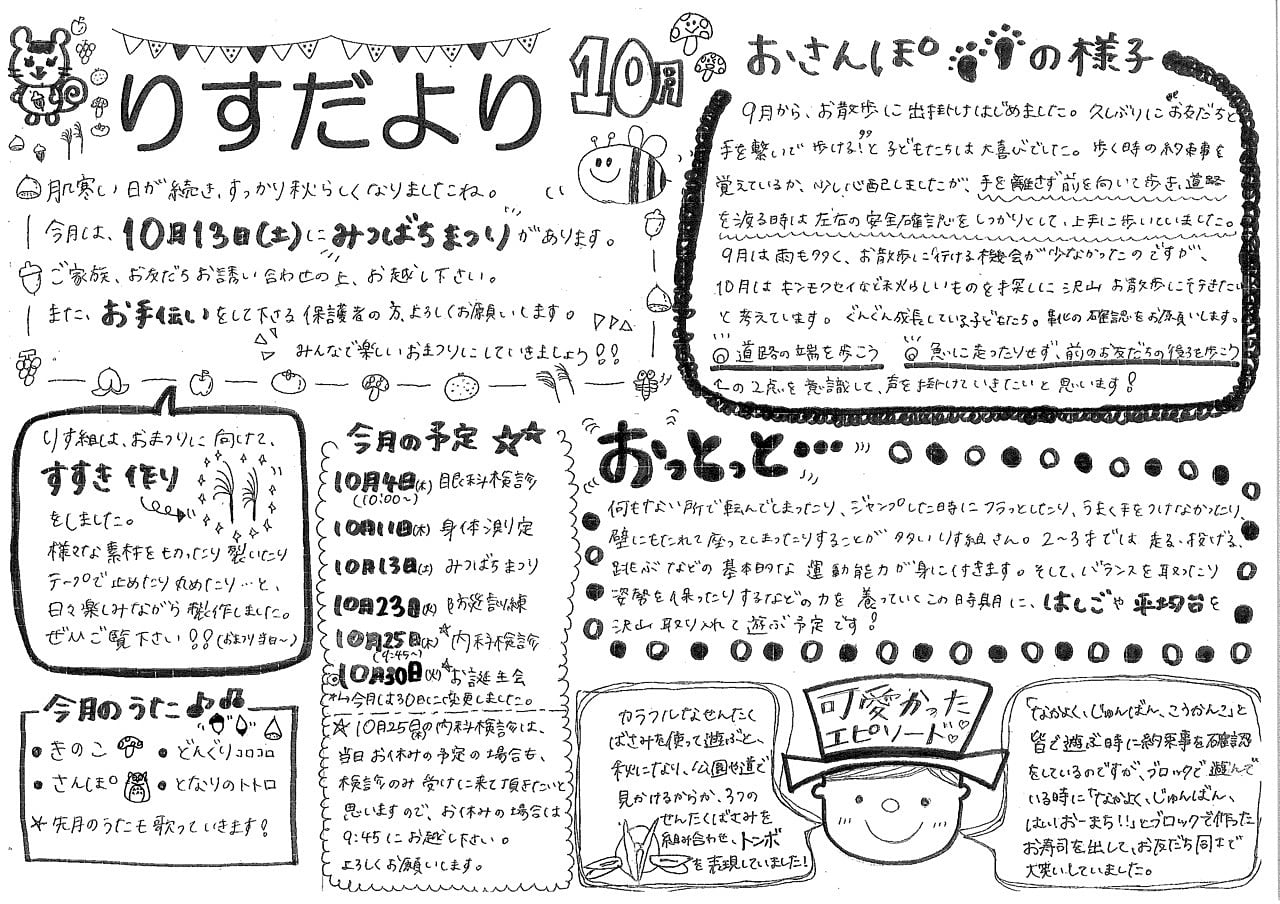 りすだより
10月
肌寒い日が続き、すっかり秋らしくなりましたね。
今月は、10月13日(土)にみつばちまつりがあります。
ご家族、お友だちお誘い合わせの上、お越し下さい。
また、お手伝いをして下さる保護者の方、よろしくお願いします。
みんなで楽しいおまつりにしていきましょう!!
おさんぽの様子
9月から、お散歩に出掛けはじめました。久しぶりにお友だちと
手を繋いで歩ける!と子どもたちは大喜びでした。歩く時の約束事を
覚えているか、少し心配しましたが、手を離さず前を向いて歩き、道路
を渡る時は左右の安全確認をしっかりとして、上手に歩いていました。
9月は雨も多く、お散歩に行ける機会が少なかったのですが、
10月はキンモクセイなど秋らしいものを探しに沢山お散歩に行きたい
と考えています。ぐんぐん成長している子どもたち。靴の確認をお願いします。
◎道路の端を歩こう ◎急に走ったりせず、前のお友だちの後ろを歩こう
この2点を意識して、声を掛けていきたいと思います!
りす組は、おまつりに向けて、
すすき作り
をしました。
様々な素材をもったり裂いたり
テープで止めたり丸めたり…と、
日々楽しみながら製作しました。
ぜひご覧下さい!!(おまつり当日〜)
今月のうた♪♫
•きのこ •どんぐりコロコロ
•さんぽ •となりのトトロ
☆先月のうたも歌っていきます!
今月の予定☆☆
10月4日(木)眼科検診
(10:00〜)
10月11日(木)身体測定
10月13日(土)みつばちまつり
10月23日(火)防災訓練
10月25日(木)☆内科検診
(9:45〜)
◎10月30日(火)☆お誕生会
今月は30日に変更しました。
☆10月25日(木)の内科検診は、
当日お休みの予定の場合も、
検診のみ受けに来て頂きたいと
思いますので、お休みの場合は
9:45にお越し下さい。
よろしくお願いします。
おっとっと…
何もない所で転んでしまったり、ジャンプした時にフラッとしたり、うまく手をつけなかったり、
壁にもたれて座ってしまったりすることが多いりす組さん。2〜3才では走る、投げる、
跳ぶなどの基本的な運動能力が身に付きます。そして、バランスを取ったり
姿勢を保ったりするなどの力を養っていくこの時期に、はしごや平均台を
沢山取り入れて遊ぶ予定です!
可愛かった
エピソード♡
カラフルなせんたく
ばさみを使って遊ぶと、
秋になり、公園や道で
見かけるからか、3つの
せんたくばさみを
組み合わせ、トンボ
を表現していました!
「なかよく、じゅんばん、こうかんこ」と
皆で遊ぶ時に約束事を確認
をしているのですが、ブロックで遊んで
いる時に「なかよく、じゅんばん、
はいおーまち!!」とブロックで作った
お寿司を出して、お友だち同士で
大笑いしていました。